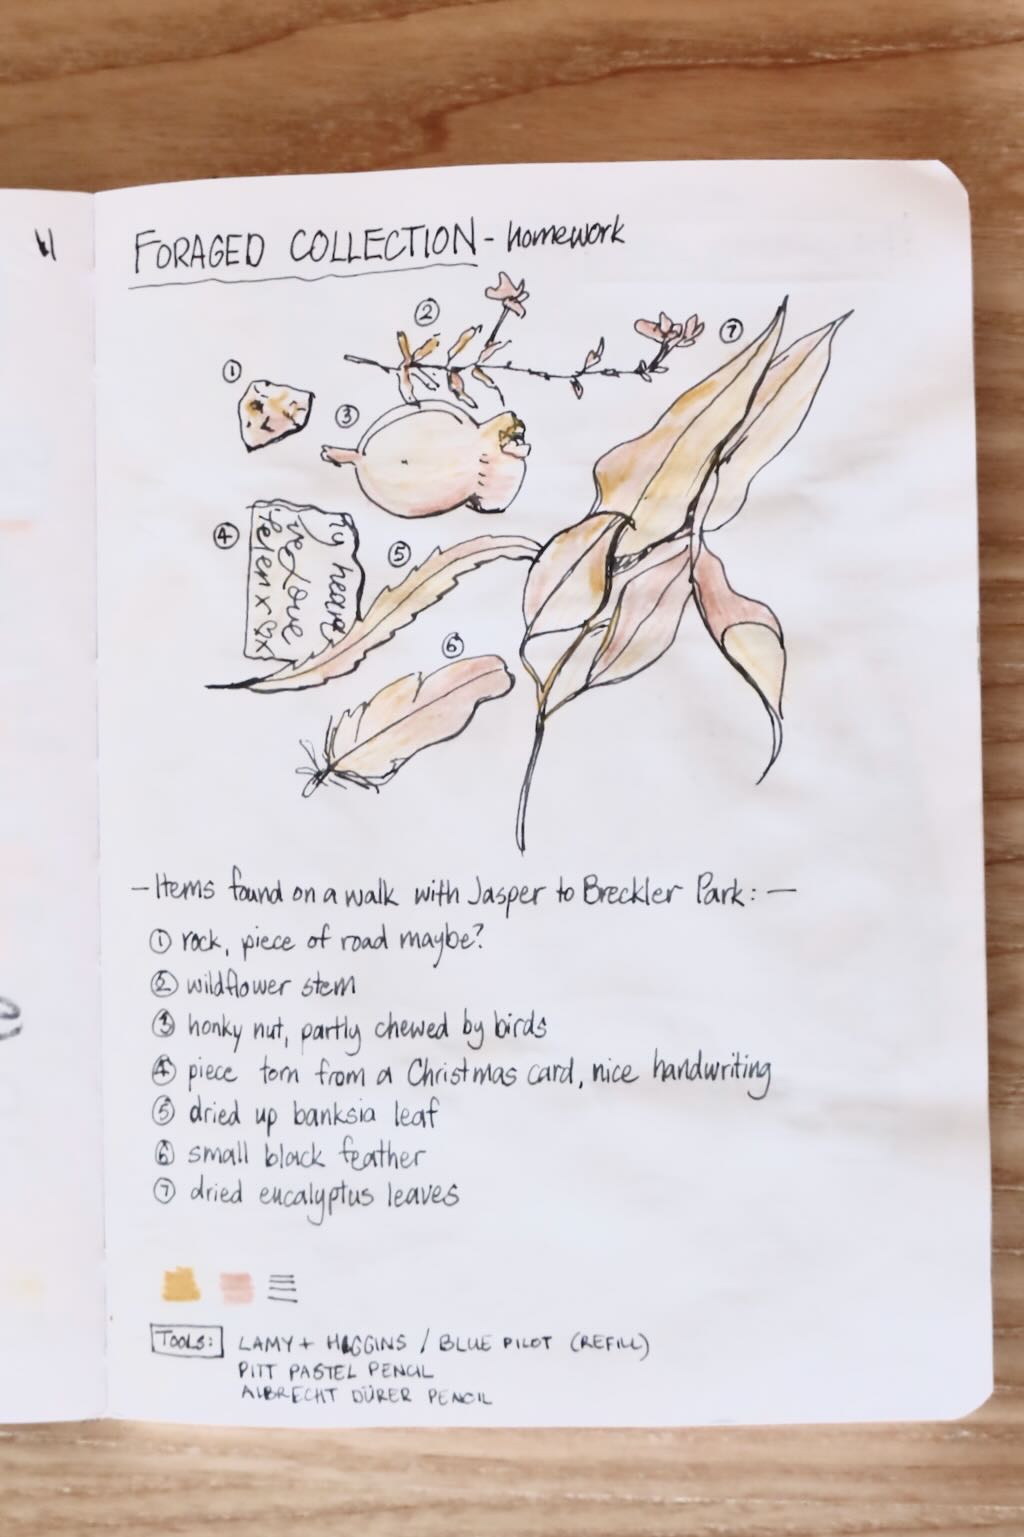 FORAGED COLLECTION - homework
②
⑦
①
③
④
my heart
ive Love
Felen x ♡x
⑤
⑥
- Items found on a walk with Jasper to Breckler Park: -
① rock, piece of road maybe?
② wildflower stem
③ honky nut, partly chewed by birds
④ piece torn from a Christmas card, nice handwriting
⑤ dried up banksia leaf
⑥ small black feather
⑦ dried eucalyptus leaves
TOOLS: LAMY + HIGGINS / BLUE PILOT (REFILL)
PITT PASTEL PENCIL
ALBRECHT DÜRER PENCIL